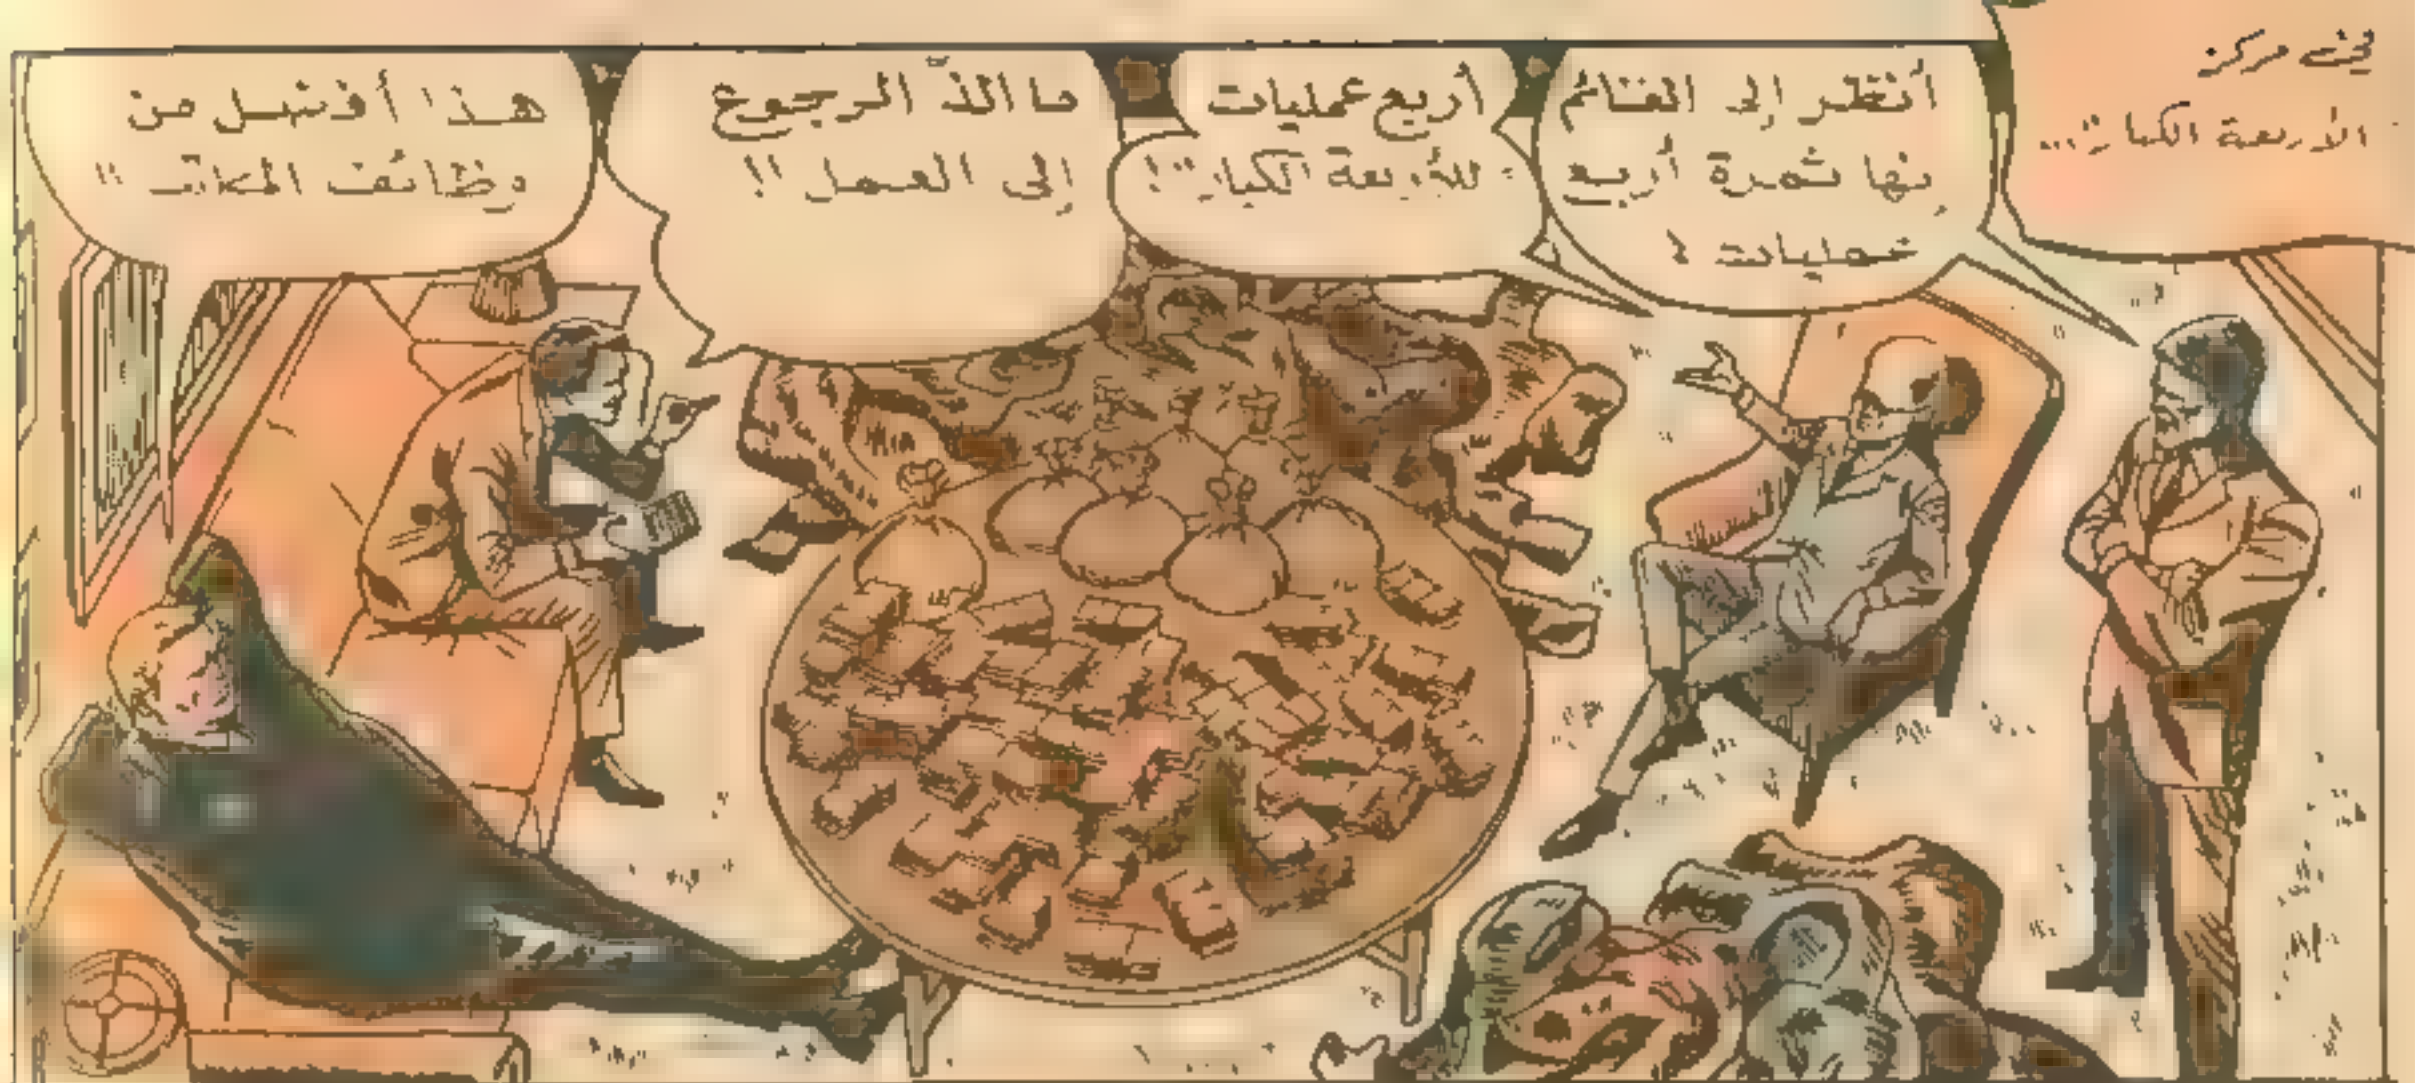 في مركز
الأربعة الكبار"...
أنظر إلى الغنائم
إنها ثمرة أربع
عمليات !
أربع عمليات
للأربعة الكبار"!
ما ألذّ الرجوع
إلى العمل !!
هذا أفضل من
وظائف المكاتب !!